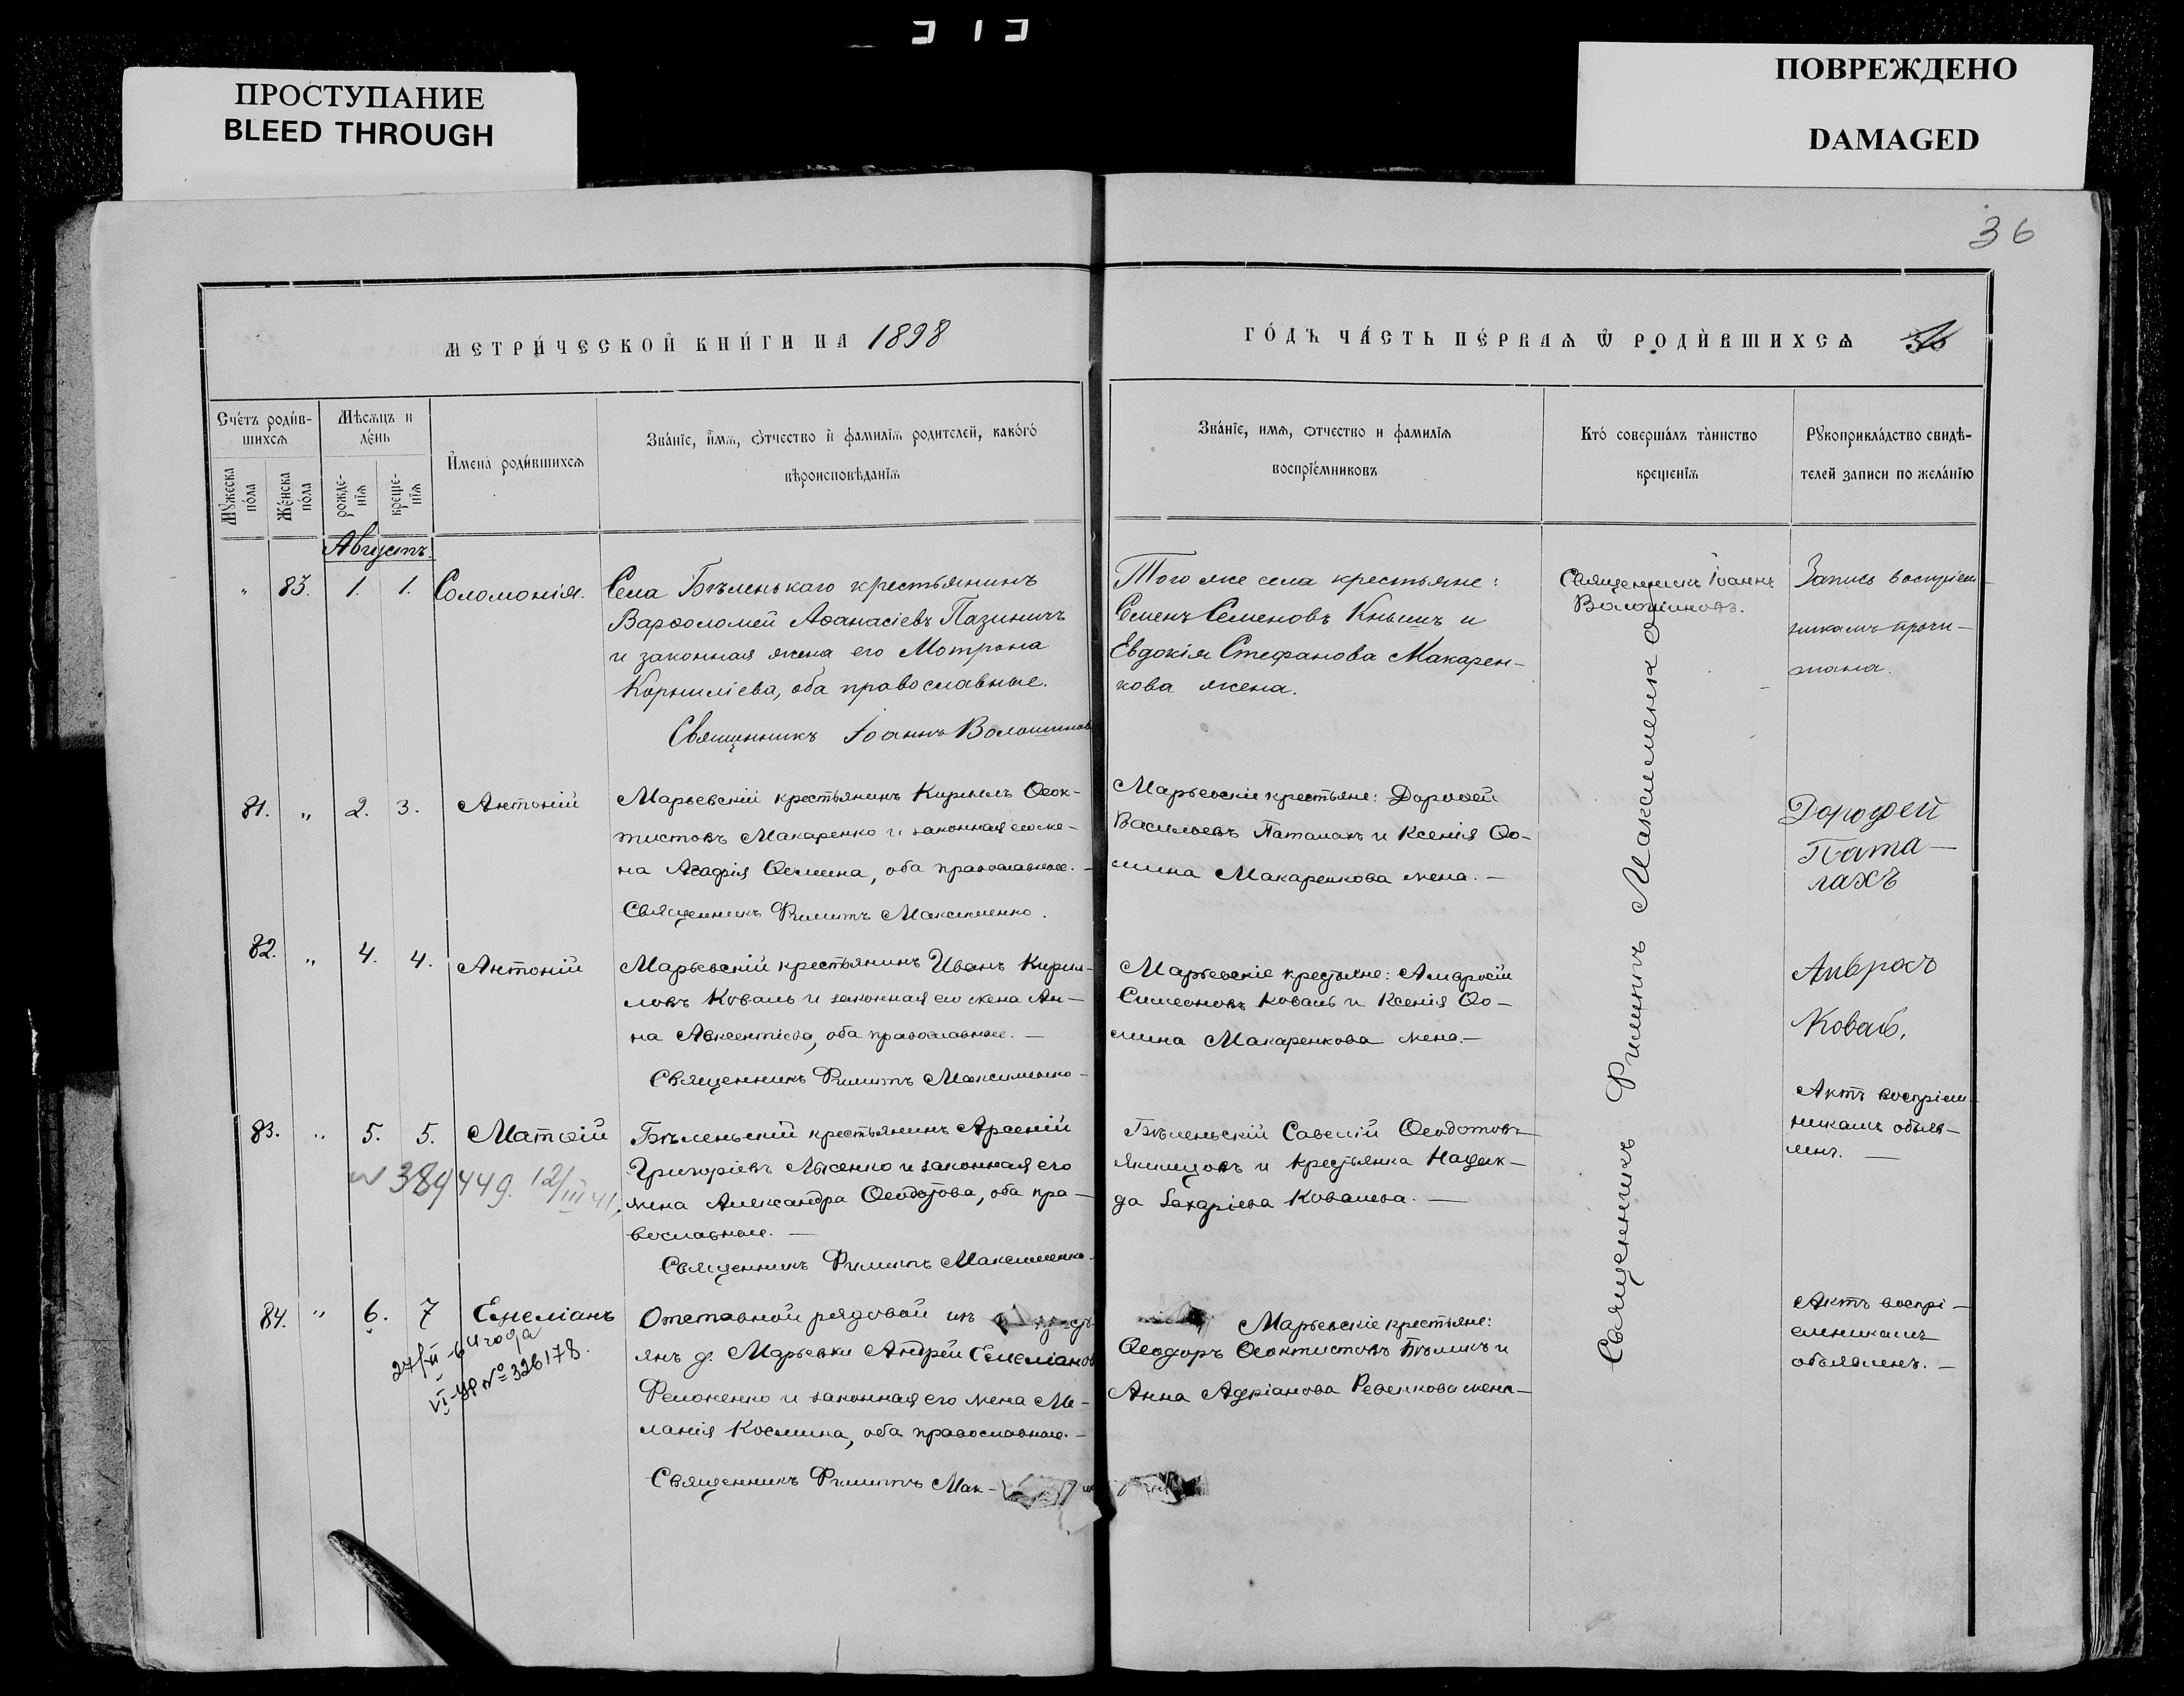 ПРОСТУПАНИЕ
BLEED THROUGH
ПОВРЕЖДЕНО
DAMAGED
36
МЕТРИ́ЧЕСКОЙ КНИ́ГИ НА 1898
ГО́ДЪ ЧА́СТЬ ПЕ́РВАѦ Ѿ РОДИ́ВШИХСѦ 36
Сче́тъ роди́в-
шихсѧ
Мѣсѧцъ и
де́нь
Мꙋжеска
по́ла
Же́нска
по́ла
рожде-
нїѧ
креще-
нїѧ
И҆мена̀ роди́вшихсѧ
Зва́нїе, и҆́мѧ, ѻ҆́тчество и҆ фамилїѧ родителей, како́гѡ́
вѣроисповѣданїѧ
Зва́нїе, имѧ, ѻтчество и фамилїѧ
воспрїе́мниковъ
Кто̀ соверша́лъ та̀инство
крещенїѧ
Рꙋкоприкла́дство свидѣ-
телей записи по жела́нїю
Августъ.
" 83. 1. 1. Соломонія.
Села Бѣленькаго крестьянинъ
Варѳоломей Аѳанасіевъ Пазиничъ
и законная жена его Мотрона
Корниліева, оба православные.
Священникъ Іоаннъ Волошиновъ
Того же села крестьяне:
Семенъ Семеновъ Кнышъ и
Евдокія Стефанова Макарен-
кова жена.
Священникъ Іоаннъ
Волошиновъ.
Запись воспріем-
никамъ прочи-
тана.
81. " 2. 3. Антоній
Марьевскій крестьянинъ Кириллъ Ѳеок-
тистовъ Макаренко и законная его же-
на Агафія Ѳомина, оба православные. -
Священникъ Филиппъ Максименко.
Марьевскіе крестьяне: Дороѳей
Васильевъ Паталахъ и Ксенія Ѳо-
мина Макаренкова жена. -
Дорофей
Пата-
лахъ
82. " 4. 4. Антоній
Марьевскій крестьянинъ Иванъ Кирил-
ловъ Коваль и законная его жена Ан-
на Авксентіева, оба православные. -
Священникъ Филиппъ Максименко -
Марьевскіе крестьяне: Амвросій
Симеоновъ Коваль и Ксенія Ѳо-
мина Макаренкова жена. -
Анврось
Коваль.
83. " 5. 5. Матѳій
№ 389449. 12/III 41.
Бѣленьскій крестьянинъ Арсеній
Григоріевъ Лысенко и законная его
жена Александра Ѳеодотова, оба пра-
вославные. -
Священникъ Филиппъ Максименко.
Бѣленьскій Савелій Ѳеодотовъ
и крестьянка Надеж-
да Захаріева Ковалева. -
Актъ воспріем-
никамъ объяв-
ленъ. -
84. " 6. 7 Емеліанъ
27/II-64 года
VI-ЯР № 326178.
Отставной рядовой изъ
янъ д. Марьевки Андрей Емеліановъ
и законная его жена Ме-
ланія Космина, оба православные. -
Священникъ Филиппъ Мак-
Марьевскіе крестьяне:
Ѳеодоръ Ѳеоктистовъ Бѣликъ и
Анна Адріанова Ревенкова жена -
Актъ воспрі-
емникамъ
объявленъ. -
Священникъ Филиппъ Максименко